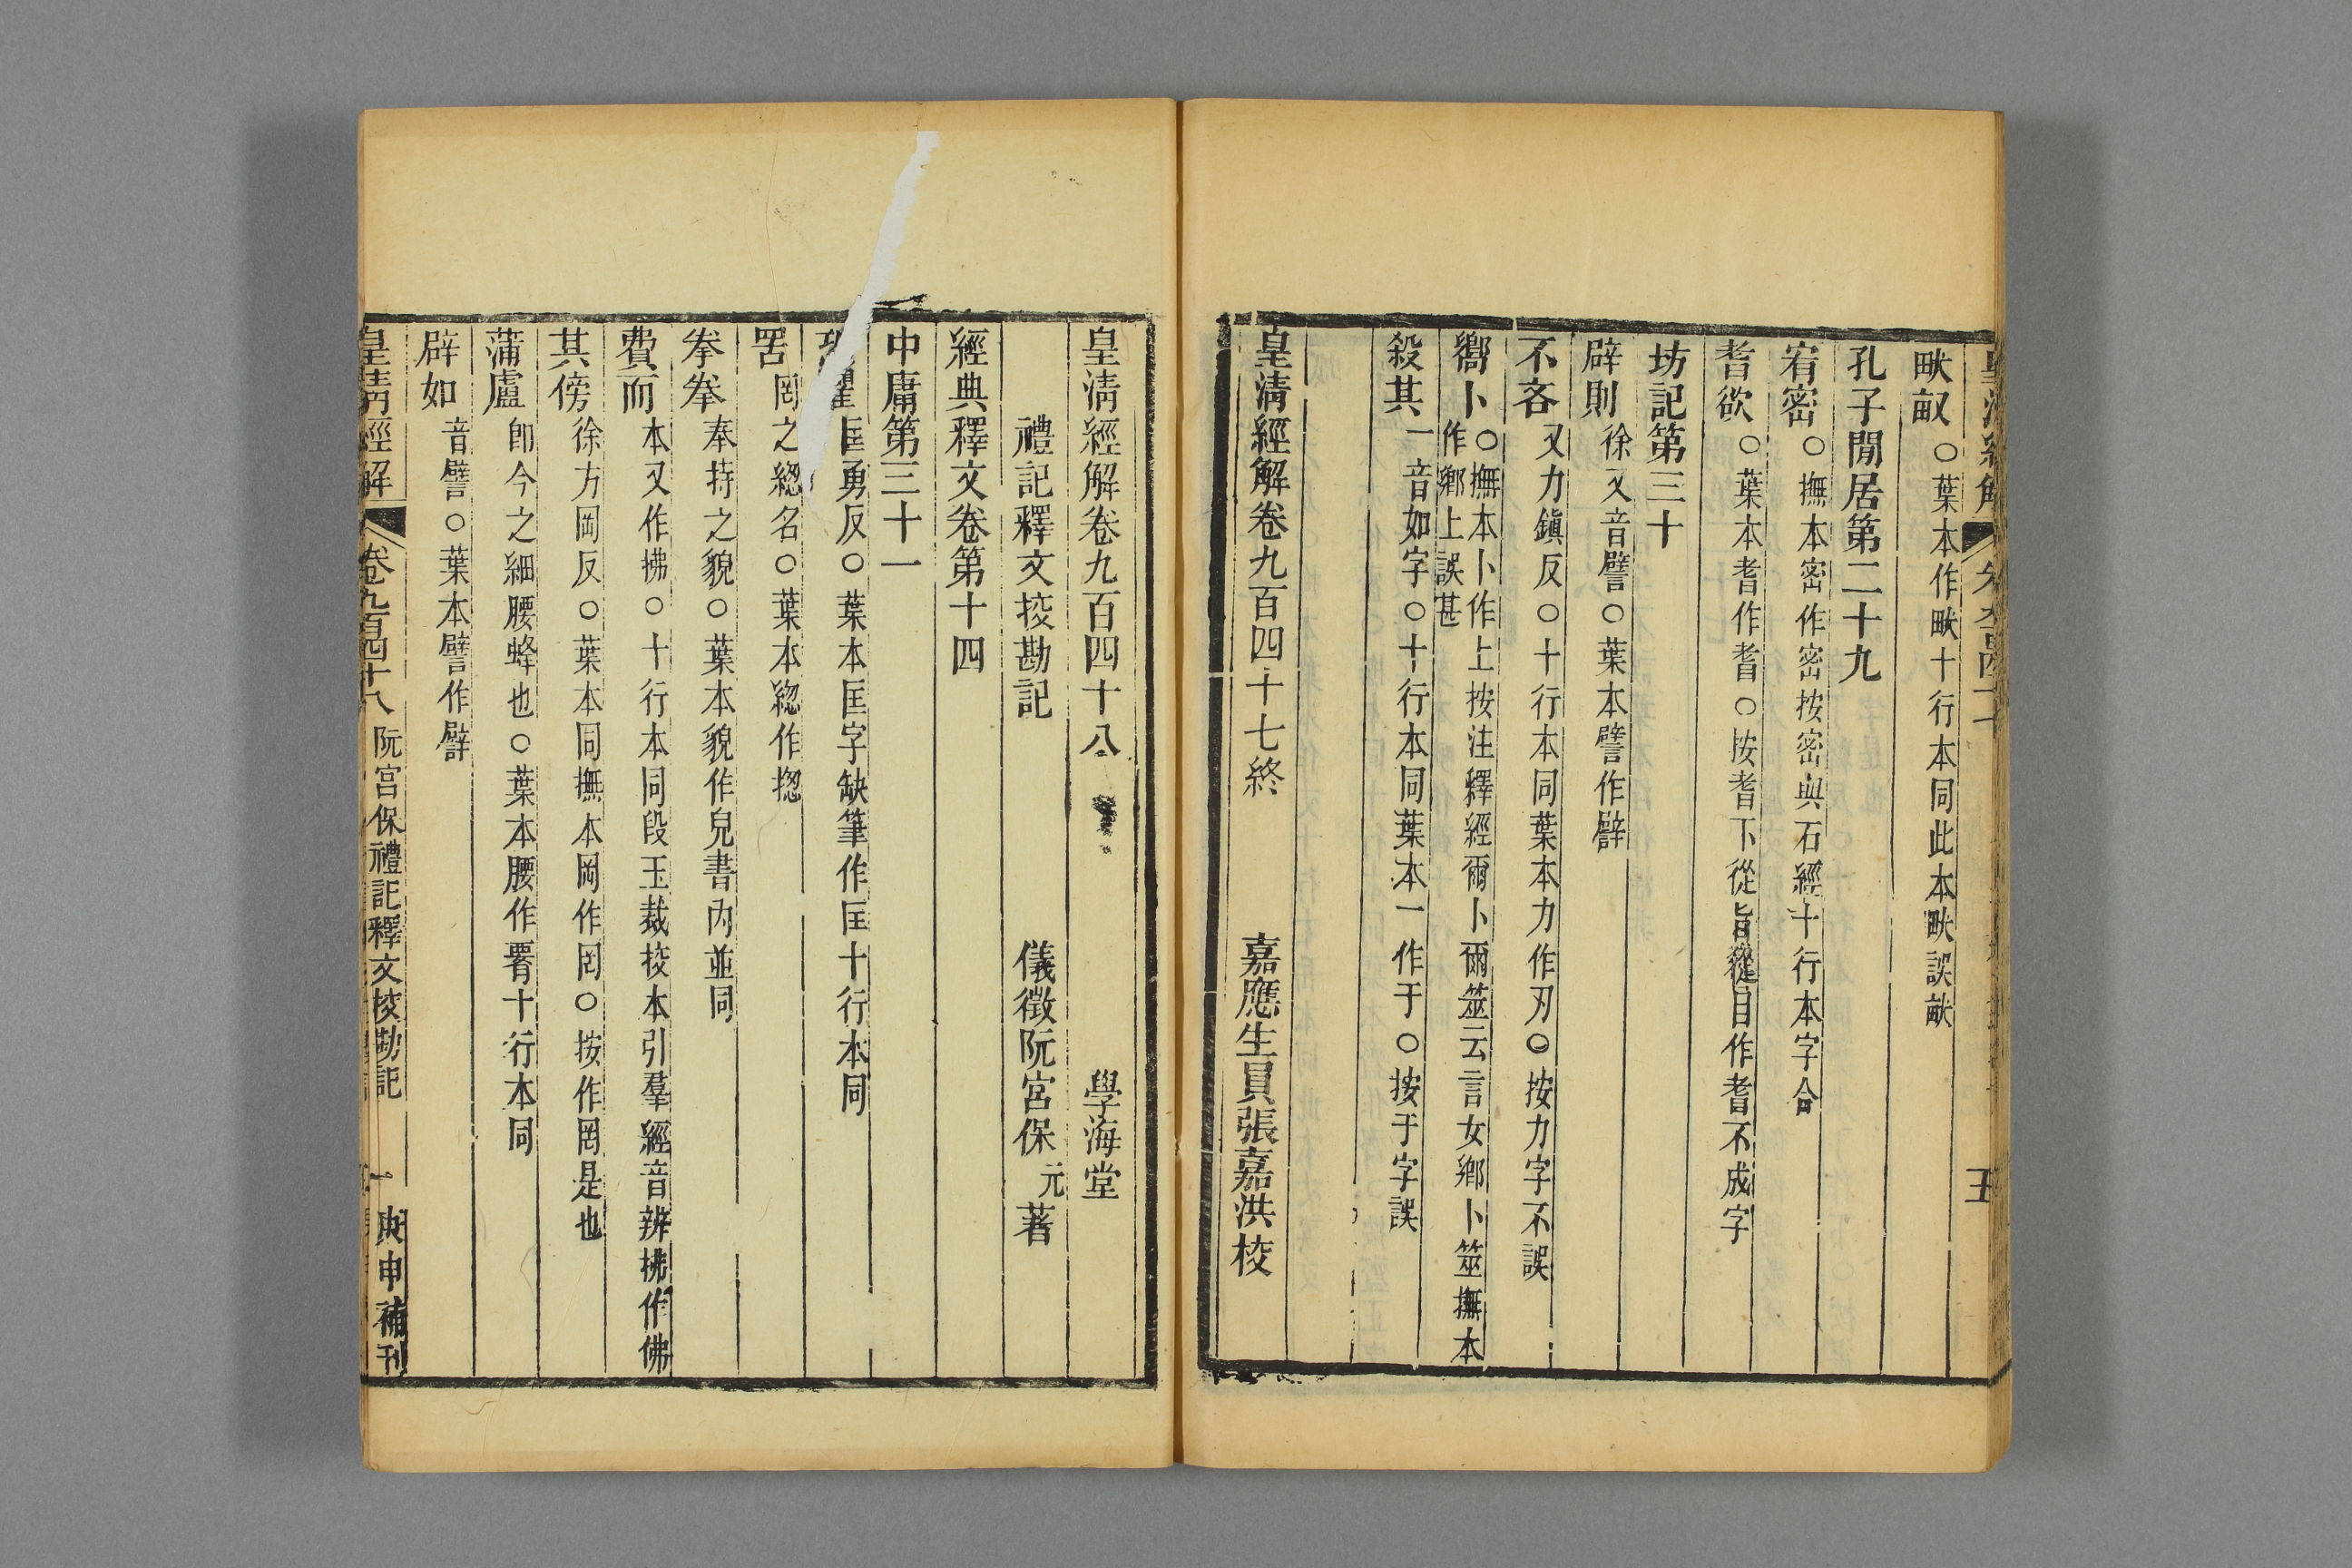 畎畝○葉本作畎十行本同此本畎誤畝
孔子閒居第二十九
宥密○撫本密作宻按密與石經十行本字合
耆欲○葉本耆作耆○按耆下從旨從目作耆不成字
坊記第三十
辟則徐又音譬○葉本譬作臂
不吝又力鎮反○十行本同葉本力作刃○按力字不誤
嚮卜○撫本卜作上按注釋經爾卜爾筮云言女鄉卜筮撫本
作鄉上誤甚
殺其一音如字○十行本同葉本一作于○按于字誤
皇淸經解卷九百四十七終
嘉應生員張嘉洪校
五
皇淸經解卷九百四十八
學海堂
禮記釋文挍勘記
儀徵阮宮保元著
經典釋文卷第十四
中庸第三十一
匡勇反○葉本匡字缺筆作匡十行本同
罟罔之緫名○葉本緫作揔
拳拳奉持之貌○葉本貌作皃書內並同
費而本又作拂○十行本同段玉裁挍本引羣經音辨拂作佛
其傍徐方岡反○葉本同撫本岡作罔○按作岡是也
蒲盧卽今之細腰蜂也○葉本腰作䙅十行本同
辟如音譬○葉本譬作臂
皇淸經解
卷九百四十八
阮宮保禮記釋文挍勘記
一
庚申補刊